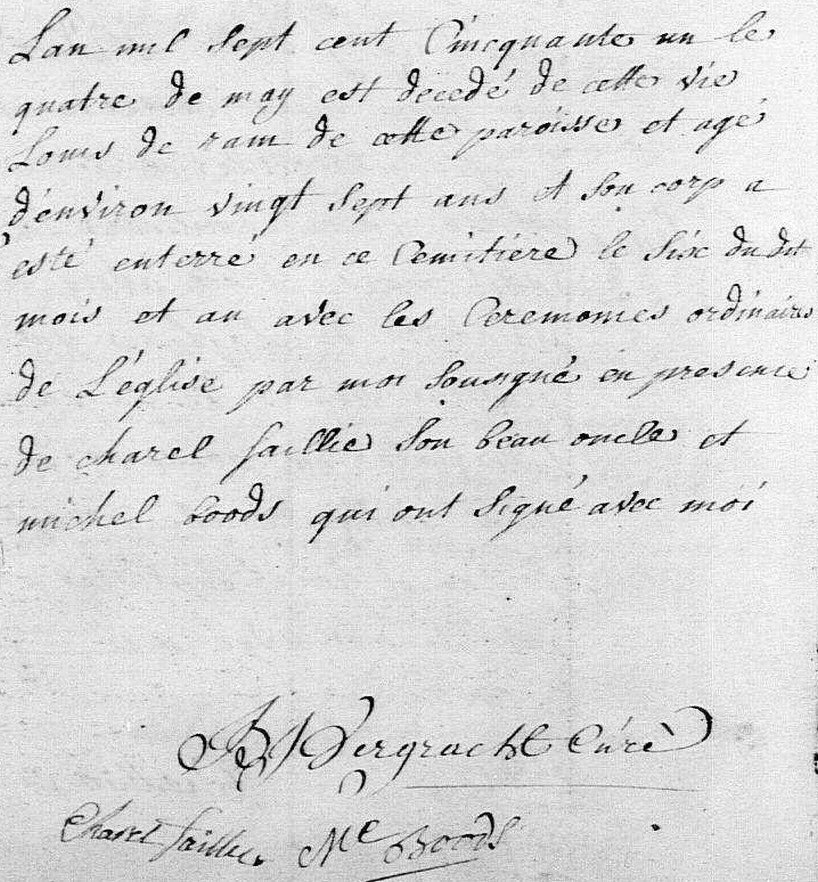 Lan mil sept cent Cincquante un le
quatre de may est decedé de cette vie
Louis de ram de cette paroisse et agé
d'environ vingt sept ans et son corp a
esté enterré en ce Cemitiére le six du dit
mois et an avec les Ceremonies ordinaires
de L'église par moi sousigné en presence
de charel faillie son beau oncle et
michel boods qui ont signé avec moi
Vergracht Curé
Charel faillie Mc Boods